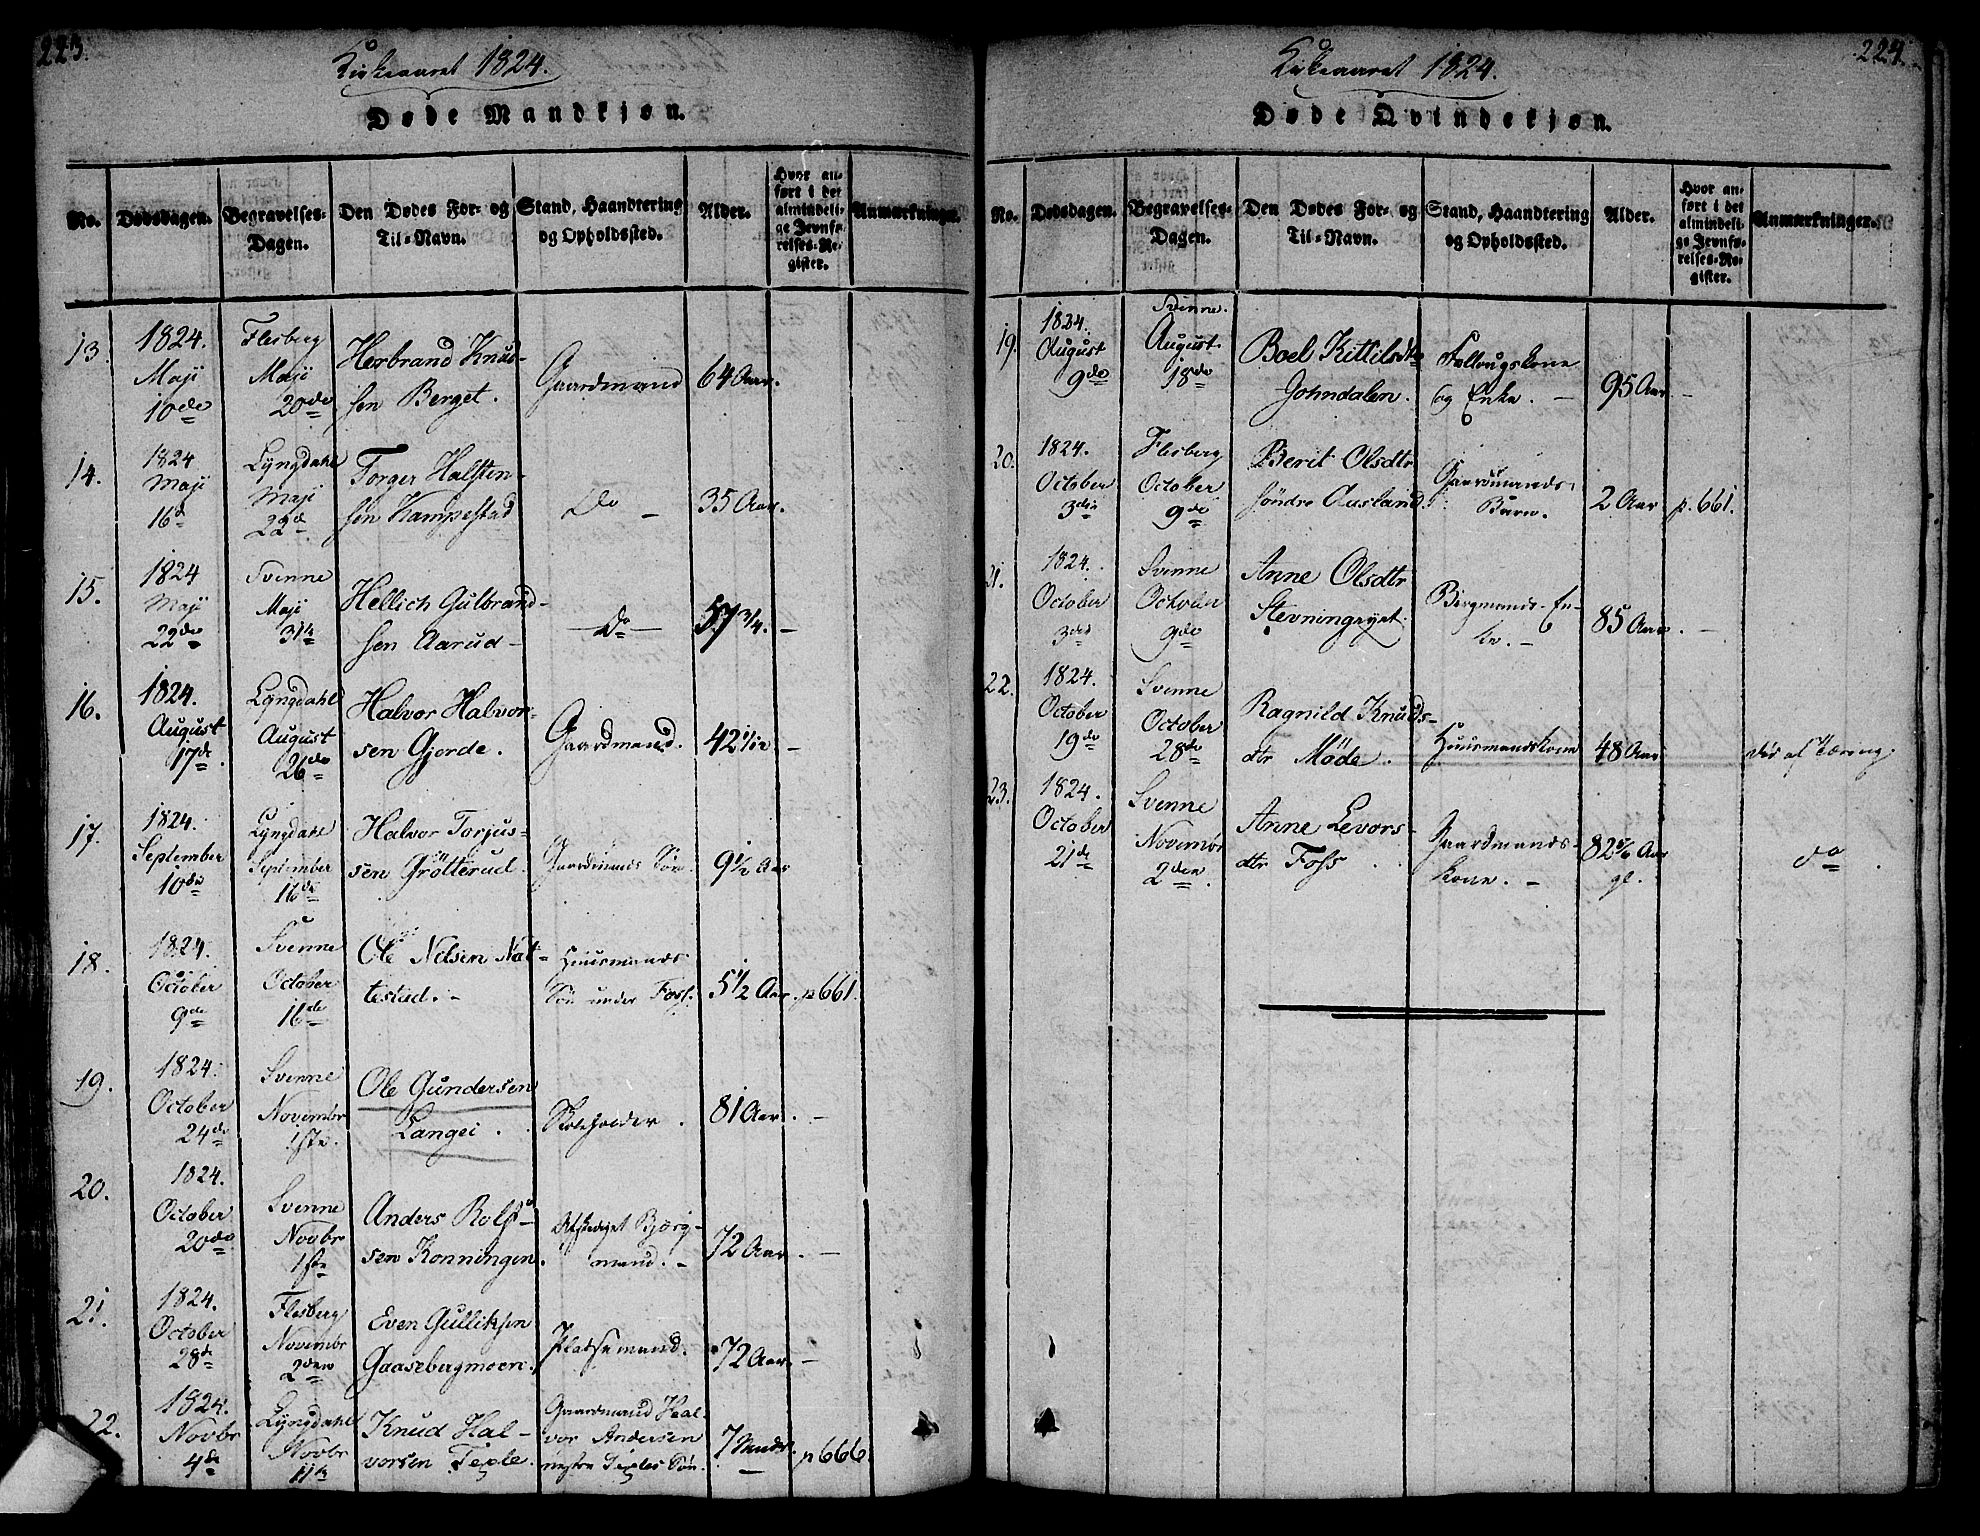 223.
Kirkeaaret 1824.
Døde Mandkjøn.
No.
Dødsdagen.
Begravelses-
Dagen.
Den Dødes For- og
Til-Navn.
Stand, Haandtering
og Opholdssted.
Alder.
Hvor an-
ført i det
almindeli-
ge Jevnfø-
relses-Re-
gister.
Anmærkninger.
13.
1824.
Maji
10de
Flesberg
Maji
20de
Herbrand Knud-
sen Berget.
Gaardmand
64 Aar.
14.
1824
Maji
16d
Lyngdahl
Maji
22d
Torger Halsten-
sen Kampestad
Do –
35 Aar.
15.
1824
Maji
22de
Svenne
Maji
31te
Hellich Gulbrand-
sen Aarud –
– Do –
57 3/4. –
16.
1824.
August
17de.
Lyngdahl
August
26de
Halvor Halvor-
sen Gjorde.
Gaardmand.
42 1/12 –
17.
1824.
September
10de
Lyngdahl
September
16de
Halvor Torjus-
sen Grötterud.
Gaardmands Søn
9 1/2 Aar
18.
1824.
October
9de
Svenne
October
16de
Ole Nelsen Nat-
testad. –
Huusmands
Søn under Foss.
5 1/2 Aar.
p 661.
19.
1824.
October
24de
Svenne
Novembr
1ste.
Ole Gundersen
Langei.
Skoleholder.
81 Aar. –
20.
1824.
October
20de
Svenne
Novbr
1ste
Anders Rolf-
sen Konningen.
Afskediget Bjerg-
mand. –
72 Aar. –
21.
1824.
October
28de
Flesberg
Novembr
2den
Even Gulliksen
Gaasebergmoen.
Pladsemand.
72 Aar. –
22.
1824.
Novbr
4de
Lyngdahl
Novbr
11te
Knud Hal-
vorsen Texle.
Gaardmand Hal-
vor Andersen
nestre Texles Søn.
7 Mndr.
p 666.
224.
Kirkeaaret 1824.
Døde Qvindekjøn.
No.
Dødsdagen.
Begravelses-
Dagen.
Den Dødes For- og
Til-Navn.
Stand, Haandtering
og Opholdssted.
Alder.
Hvor an-
ført i det
almindeli-
ge Jevnfø-
relses-Re-
gister.
Anmærkninger.
19.
1824.
August
9de
Svenne.
August
18de
Boel Kittilsdtr
Johndalen.
og Enke. –
95 Aar –
20.
1824.
October
3die
Flesberg
October
9de
Berit Olsdtr
söndre Aasland.
Gaardmands
Barn.
2 Aar
p. 661.
21.
1824.
October
3die
Svenne
October
9de
Anne Olsdtr
Stevningsyet.
Bergmands-En-
ke. –
85 Aar. –
22.
1824.
October
19de
Svenne
October
28de
Ragnild Knuds-
dtr Møde.
Huusmandskone
48 Aar
død af Tæring.
23.
1824.
October
21de
Svenne
Novembr
2den.
Anne Levors-
dtr Foss.
Gaardmands-
kone. –
82 5/6 Aar
gl.
do.